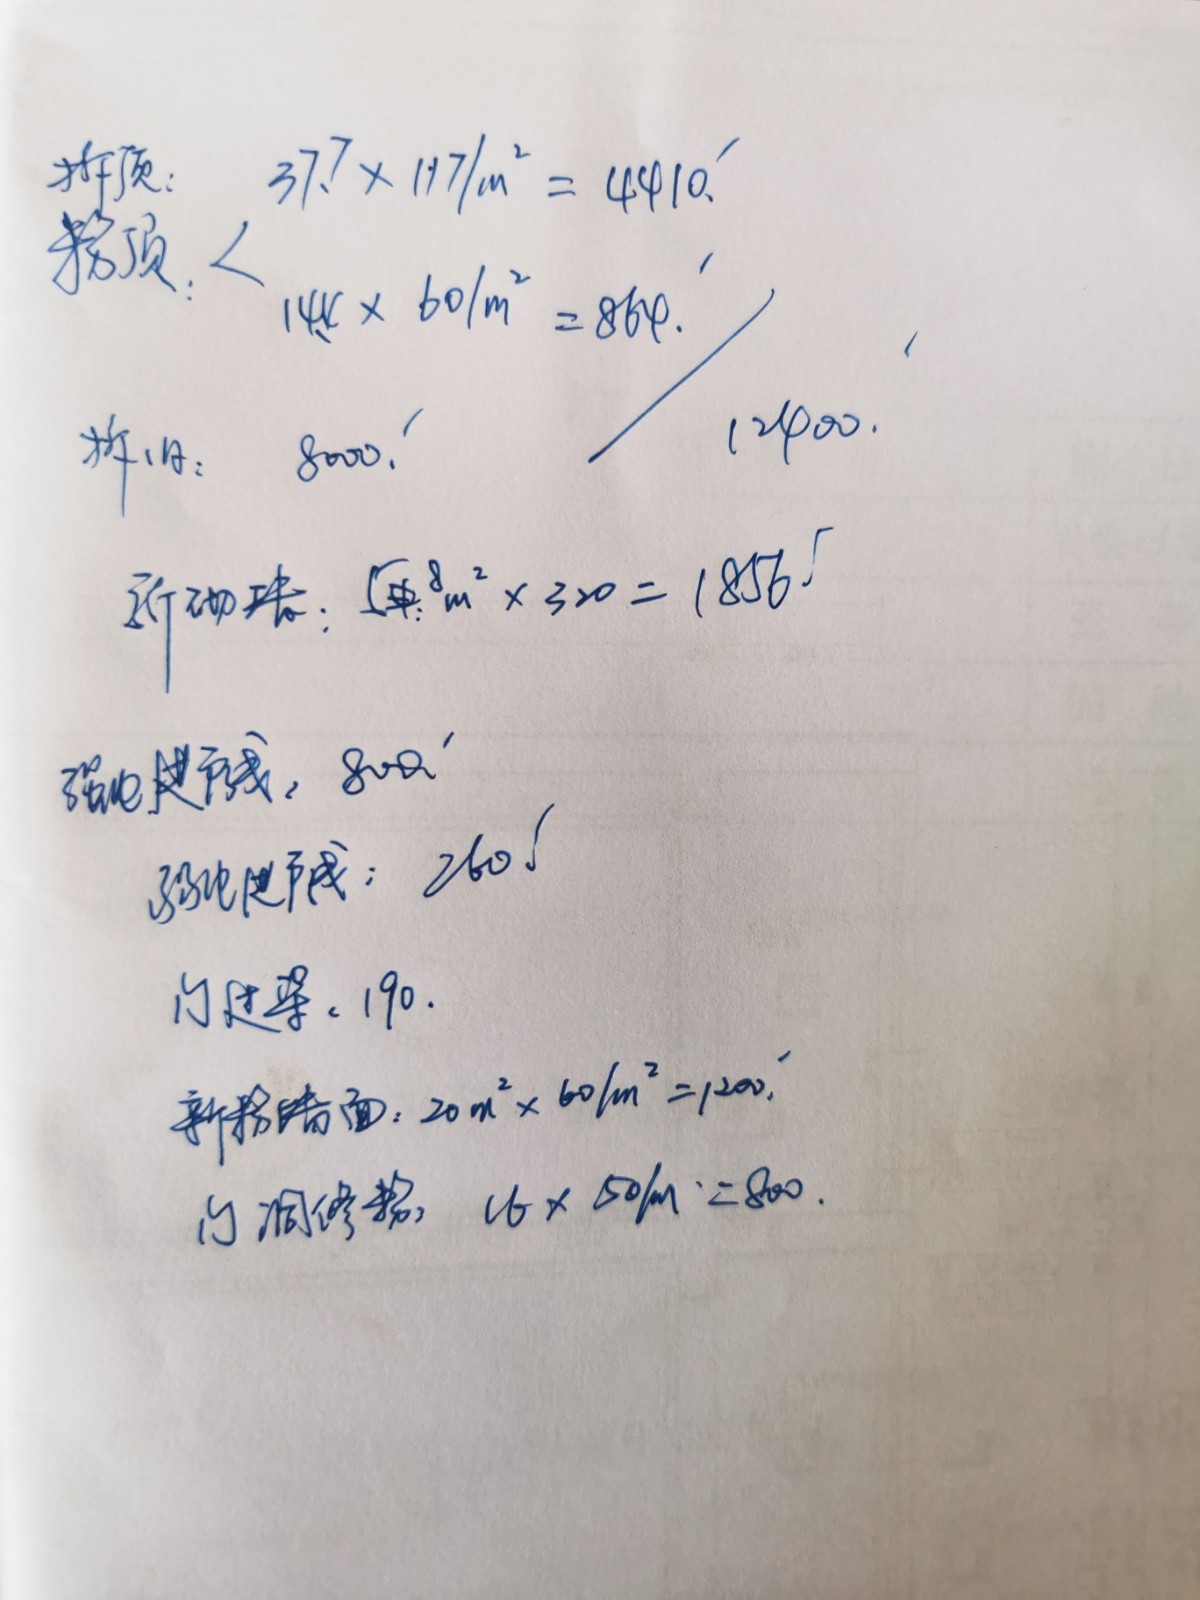 拆顶: 37.7 × 117/m² = 4410.
粉顶: <
14.4 × 60/m² = 864.
拆旧: 8000. 12400.
新砌墙: 5.8m² × 320 = 1856
强电进户线: 800.
弱电进户线: 260
门过梁: 190.
新粉墙面: 20m² × 60/m² = 1200.
门洞修粉: 16 × 50/m = 800.